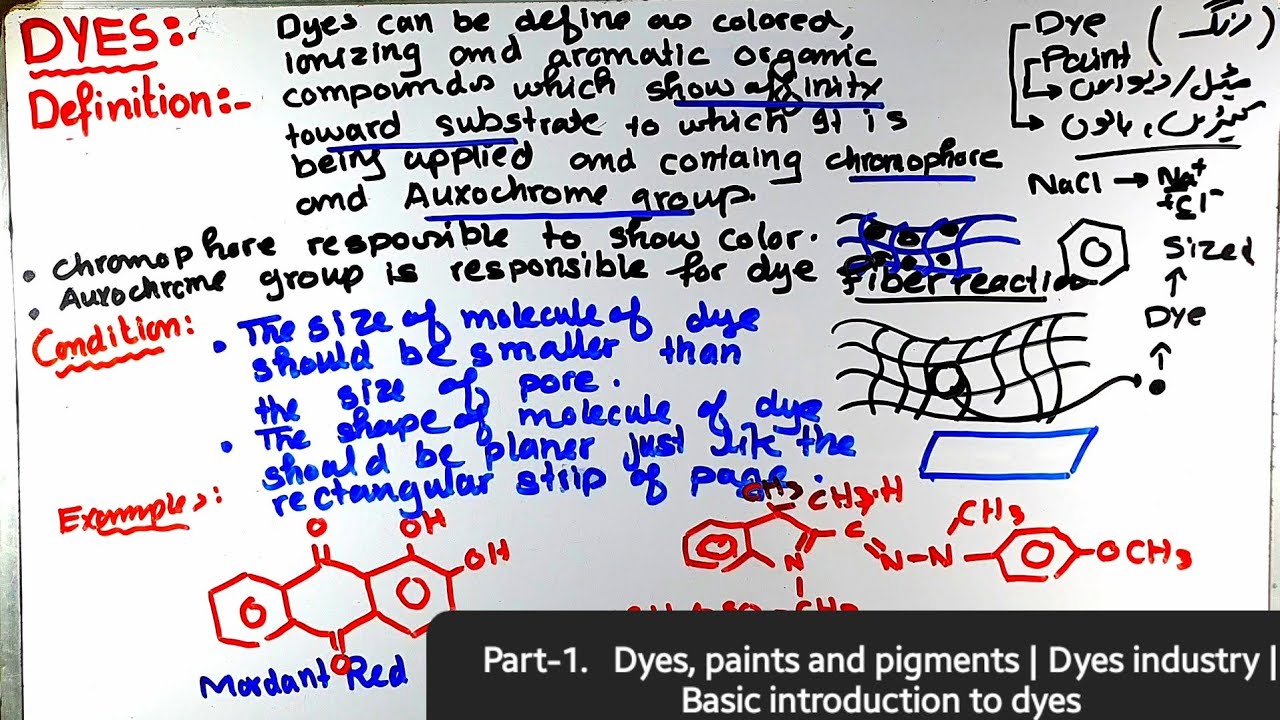 DYES:-
Definition:-
Dyes can be define as colored,
ionizing and aromatic organic
compounds which show affinity
toward substrate to which It is
being applied and containg chromophore
and Auxochrome group.
• chromophore responsible to show color.
• Auxochrome group is responsible for dye fiber reaction
Dye (رنگ)
Paint
NaCl → Na+
+Cl-
Sized
↑
Dye
↑
Condition:
• The size of molecule of dye
should be smaller than
the size of pore.
• The shape of molecule of dye
should be planer just like the
rectangular strip of page.
Examples:
O
OH
OH
O
Mordant Red
CH3
CH3
H
C
N-N
CH3
OCH3
N
CH3
Part-1. Dyes, paints and pigments | Dyes industry |
Basic introduction to dyes